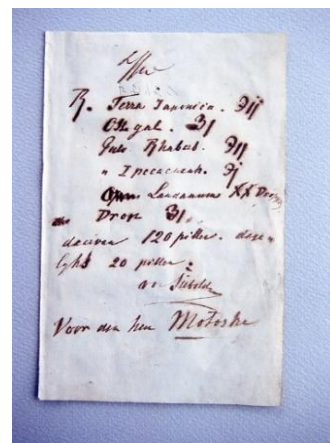 R. Terra Japonica. ℈ij
Ol gal. ʒj
Pulv Rhabar. ℈ij
" Ipecacuanh. ℈j
Laudanum XX Drops
Drop ʒj
120 pillen. dage"
lyks 20 pillen.
v Siebold
Voor den heer Motoske